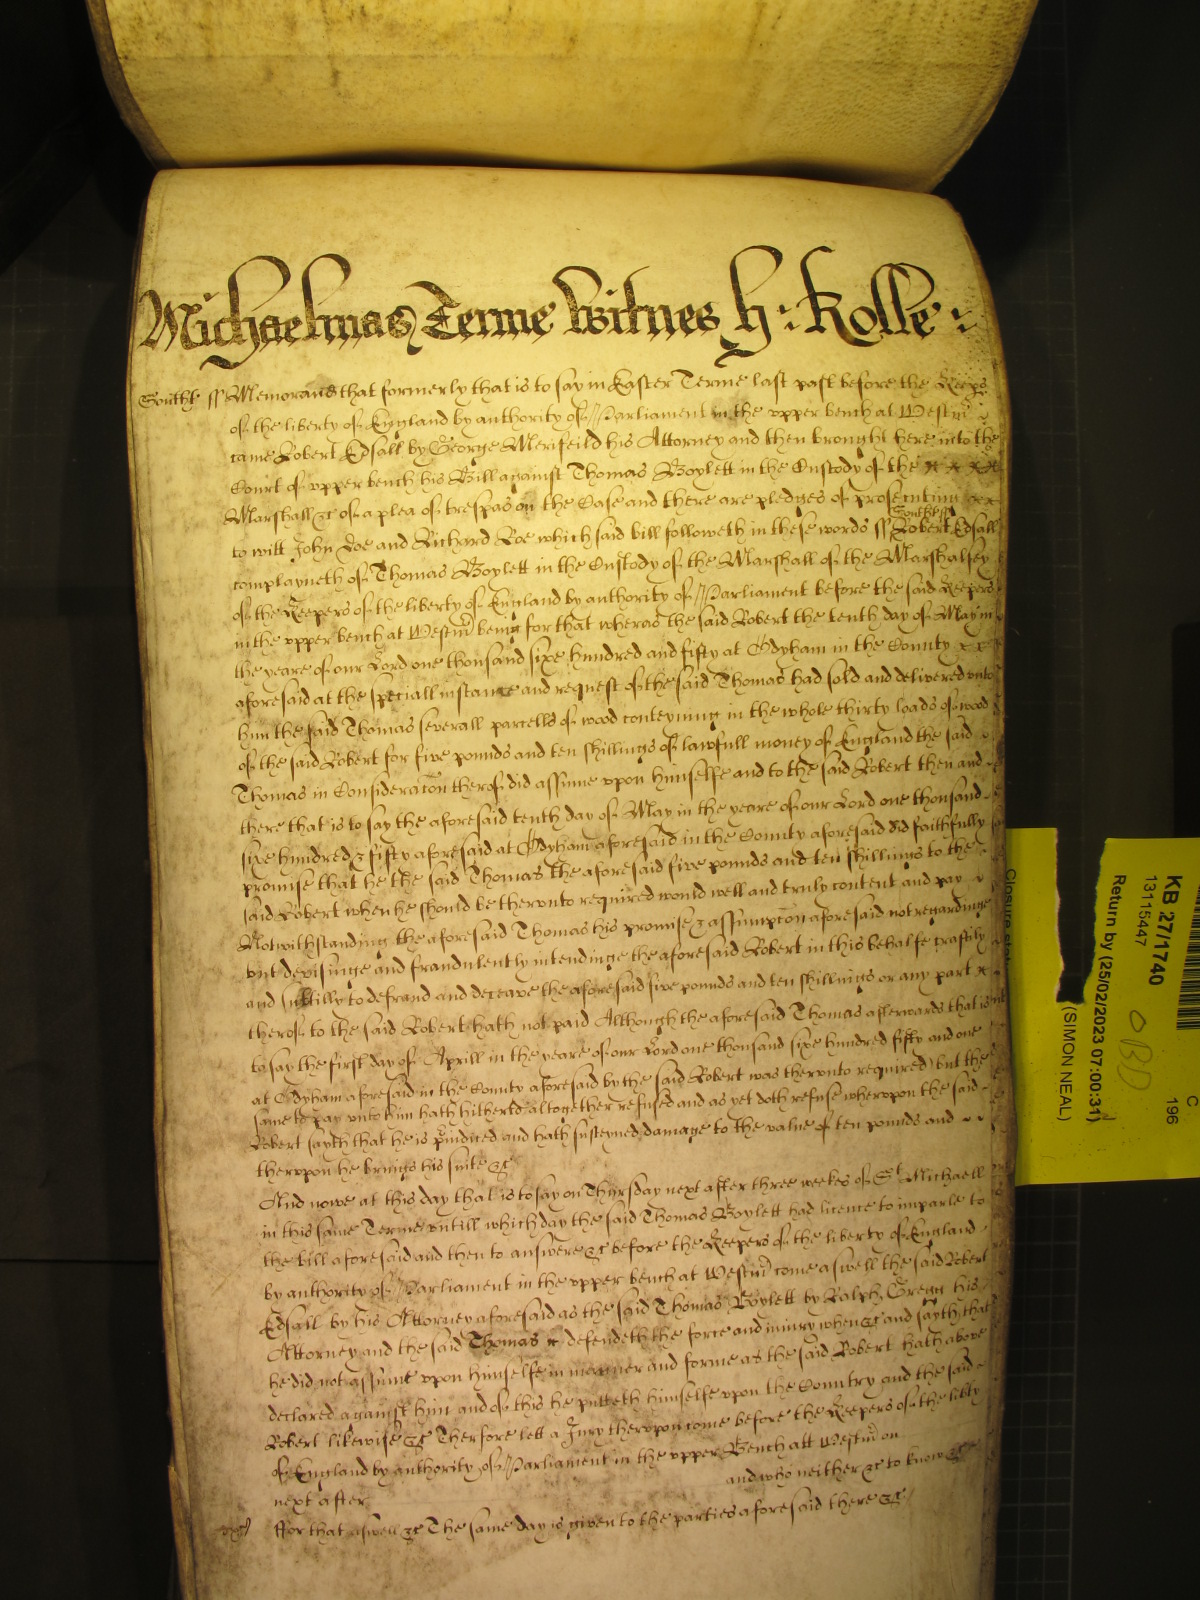 Michaelmas Terme Witnes H: Rolle:
Southt ss Memorand that formerly that is to say in Easter Terme last past before the Keeps
of the liberty of England by authority of Parliament in the upper bench at Westm
came Robert Edsall by George Merifeild his Attorney and then brought here into the
Court of upper bench his Bill against Thomas Boylett in the Custody of the
Marshall &c of a plea of trespas on the Case and there are pledges of prosecuting
to witt John Doe and Richard Roe which said bill followeth in these words ss Southt ss Robert Edsall
complayneth of Thomas Boylett in the Custody of the Marshall of the Marshalsey
of the Keepers of the liberty of England by authority of Parliament before the said Keepers
in the upper bench at Westm being for that wheras the said Robert the tenth day of May in
the yeare of our Lord one thousand sixe hundred and fifty at Odyham in the County
aforesaid at the speciall instance and request of the said Thomas had sold and delivered unto
him the said Thomas severall parcells of wood conteyning in the whole thirty loads of wood
of the said Robert for five pounds and ten shillings of lawfull money of England the said
Thomas in Consideracon therof did assume upon himselfe and to the said Robert then and
there that is to say the aforesaid tenth day of May in the yeare of our Lord one thousand
sixe hundred & fifty aforesaid at Odyham aforesaid in the County aforesaid did faithfully
promise that he the said Thomas the aforesaid five pounds and ten shillings to the
said Robert when he should be therunto required would well and truly content and pay
Notwithstanding the aforesaid Thomas his promise & assumpcon aforesaid not regardinge
but devisinge and fraudulently intendinge the aforesaid Robert in this behalfe craftily
and subtilly to defraud and deceave the aforesaid five pounds and ten shillings or any part
therof to the said Robert hath not paid Although the aforesaid Thomas afterwards that is
to say the first day of Aprill in the yeare of our Lord one thousand sixe hundred fifty and one
at Odyham aforesaid in the County aforesaid by the said Robert was therunto required but the
same to pay unto him hath hitherto altogether refused and as yet doth refuse wherupon the said
Robert sayth that he is piudiced and hath susteyned damage to the value of ten pounds and
therupon he brings his suite &c
And nowe at this day that is to say on Thursday next after three weekes of St Michaell
in this same Terme untill which day the said Thomas Boylett had licence to imparle to
the bill aforesaid and then to answere &c before the Keepers of the liberty of England
by authority of Parliament in the upper bench at Westm come aswell the said Robert
Edsall by his Attorney aforesaid as the said Thomas Boylett by Ralph Gregg his
Attorney and the said Thomas defendeth the force and iniury when &c and sayth that
he did not assume upon himselfe in manner and forme as the said Robert hath above
declared against him and of this he putteth himselfe upon the Country and the said
Robert likewise &c Therfore lett a Jury therupon come before the Keepers of the libty
of England by authority of Parliament in the upper Bench att Westm on
next after and who neither &c to know &c
ffor that aswell &c The same day is given to the parties aforesaid there &c
KB 27/1740
13115447
Return by (25/02/2023 07:00:31)
(SIMON NEAL)
C
196